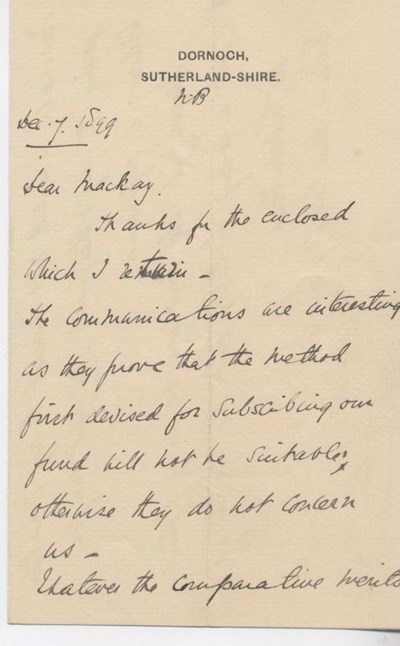 DORNOCH,
SUTHERLAND-SHIRE.
N.B
Dec. 7. 1899
Dear Mackay.
Thanks for the enclosed
which I return –
The communications are interesting
as they prove that the method
first devised for subscribing our
fund will not be suitable;
otherwise they do not concern
us –
Whatever the comparative merits